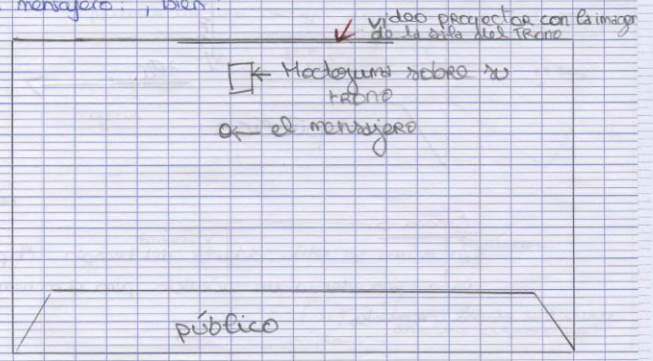 mensajero: , bien:
video proyector con la imagen
de la sala del TRONO
Moctezuma sobre su
TRONO
el mensajero
público